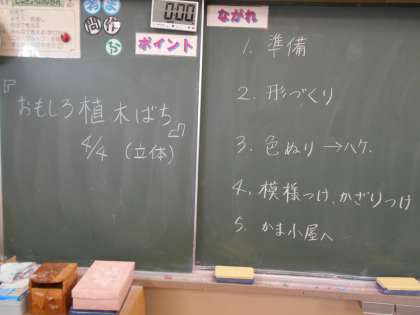 0:00
ポイント
『おもしろ植木ばち』
4/4 (立体)
ながれ
1. 準備
2. 形づくり
3. 色ぬり→ハケ.
4. 模様つけ、かざりつけ
5. かま小屋へ